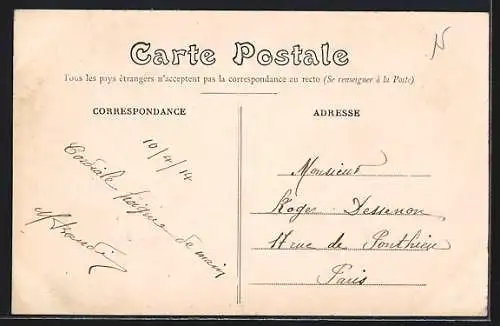 Carte Postale
Tous les pays étrangers n'acceptent pas la correspondance au recto (Se renseigner à la Poste).
CORRESPONDANCE
ADRESSE
10/4/14
Cordiale poignée de main
Monsieur
Roger Dessenon
17 rue de Ponthieu
Paris